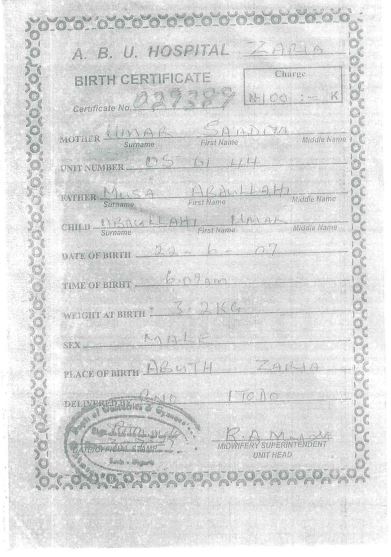 A. B. U. HOSPITAL ZARIA
BIRTH CERTIFICATE
Charge
Certificate No. 029389
₦100 :- K
MOTHER UMAR SAADIYA
Surname First Name Middle Name
UNIT NUMBER 05 61 44
FATHER MUSA ABDULLAHI
Surname First Name Middle Name
CHILD ABDULLAHI UMAR
Surname First Name Middle Name
DATE OF BIRTH 22 - 6 - 07
TIME OF BIRHT 6:09am
WEIGHT AT BIRTH : 3.2KG
SEX MALE
PLACE OF BIRTH ABUTH ZARIA
DELIVERED BY
DATE/OFFICIAL STAMP
R.A
MIDWIFERY SUPERINTENDENT
UNIT HEAD